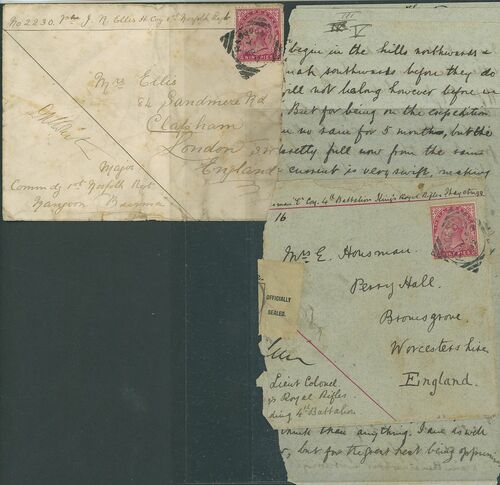 No 2230. Pte J. N. Ellis H Coy 1st Norfolk Regt
Mrs Ellis
84 Sandmere Rd
Clapham
London S.W
England
Major
Commdg 1st Norfolk Regt
Rangoon Burma
III
V
begin in the hills northwards &
southwards before they do
not last long however before
But for being on the expedition
no rain for 5 months, but the
pretty full now from the rains
current is very swift, making
"C" Coy 4th Battalion King's Royal Rifles, Thayetmyo
16
Mrs E. Housman.
Perry Hall.
Bromsgrove.
Worcestershire
England.
OFFICIALLY
SEALED.
Lieut Colonel
Royal Rifles
4th Battalion
than anything. I am as well
but for the great heat being oppressive